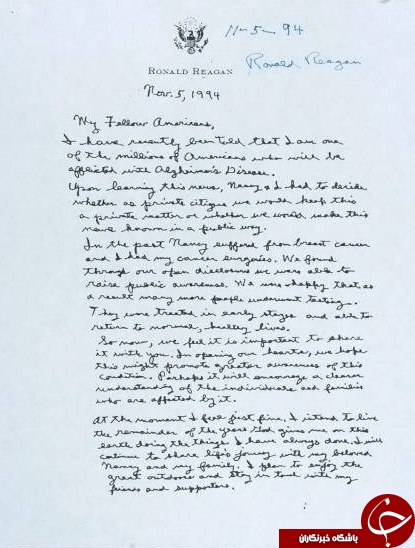 11-5-94
Ronald Reagan
RONALD REAGAN
Nov. 5, 1994
My Fellow Americans,
I have recently been told that I am one
of the millions of Americans who will be
afflicted with Alzheimer's Disease.
Upon learning this news, Nancy & I had to decide
whether as private citizens we would keep this
a private matter or whether we would make this
news known in a public way.
In the past Nancy suffered from breast cancer
and I had my cancer surgeries. We found
through our open disclosures we were able to
raise public awareness. We were happy that as
a result many more people underwent testing.
They were treated in early stages and able to
return to normal, healthy lives.
So now, we feel it is important to share
it with you. In opening our hearts, we hope
this might promote greater awareness of this
condition. Perhaps it will encourage a clearer
understanding of the individuals and families
who are affected by it.
At the moment I feel just fine. I intend to live
the remainder of the years God gives me on this
earth doing the things I have always done. I will
continue to share life's journey with my beloved
Nancy and my family. I plan to enjoy the
great outdoors and stay in touch with my
friends and supporters.
باشگاه خبرنگاران